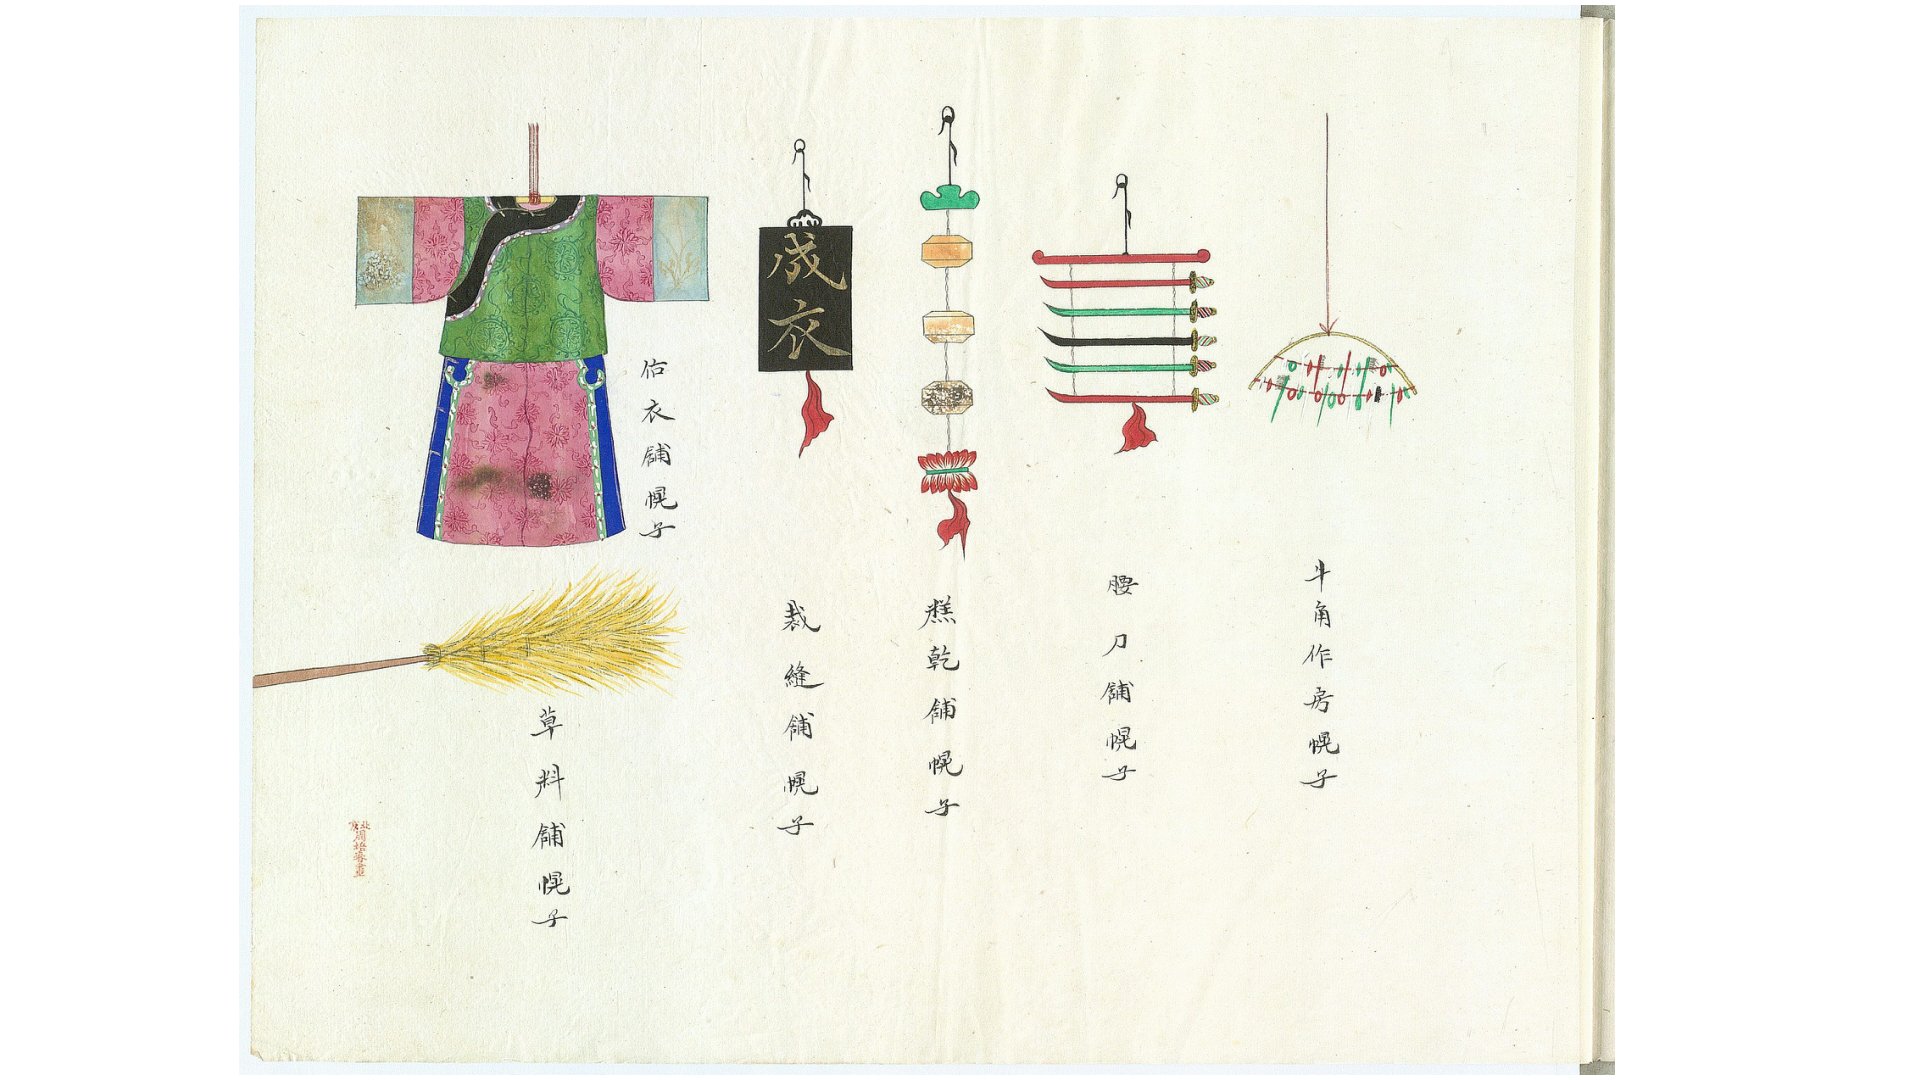 牛角作房幌子
腰刀舖幌子
糕乾舖幌子
成衣
裁縫舖幌子
估衣舖幌子
草料舖幌子
北京
周培春畫